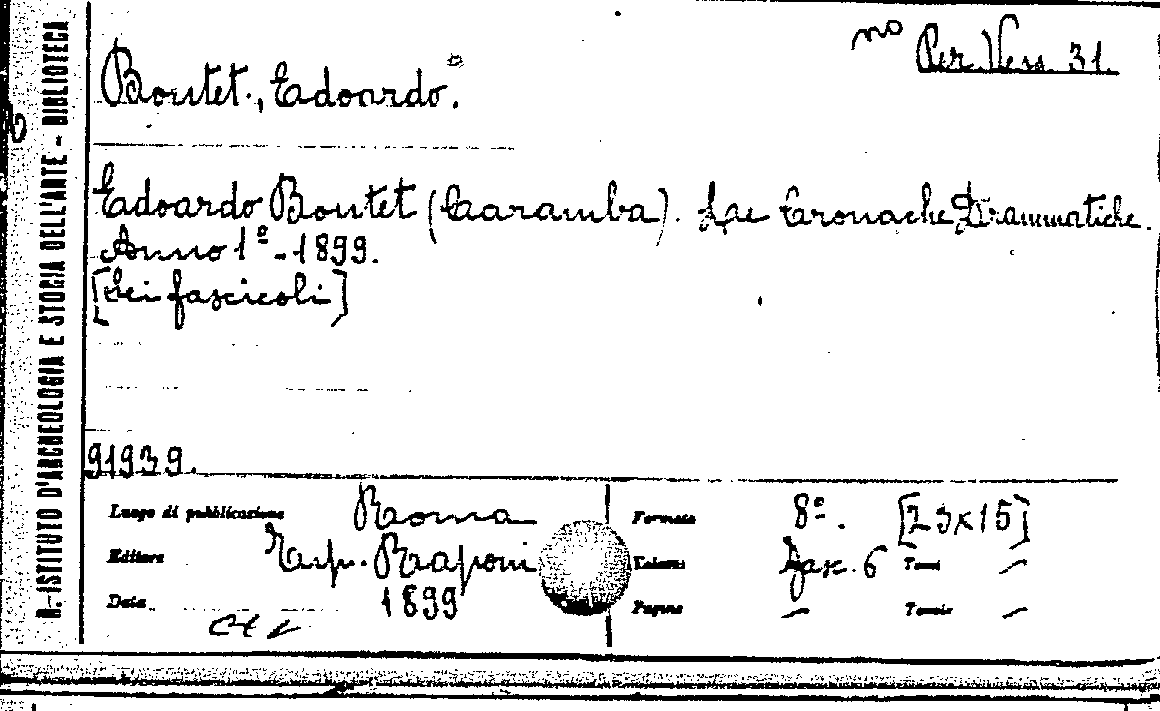 R. ISTITUTO D'ARCHEOLOGIA E STORIA DELL'ARTE - BIBLIOTECA
Per. Vess 31.
Boutet, Edoardo.
Edoardo Boutet (Caramba). Le Cronache Drammatiche.
Anno 1º - 1899.
[Sei fascicoli]
91939.
Luogo di pubblicazione Roma
Editore Tip. Raponi
Data 1899
Formato 8º. [23x15]
Volumi fasc. 6 Tomi –
Pagine – Tavole –